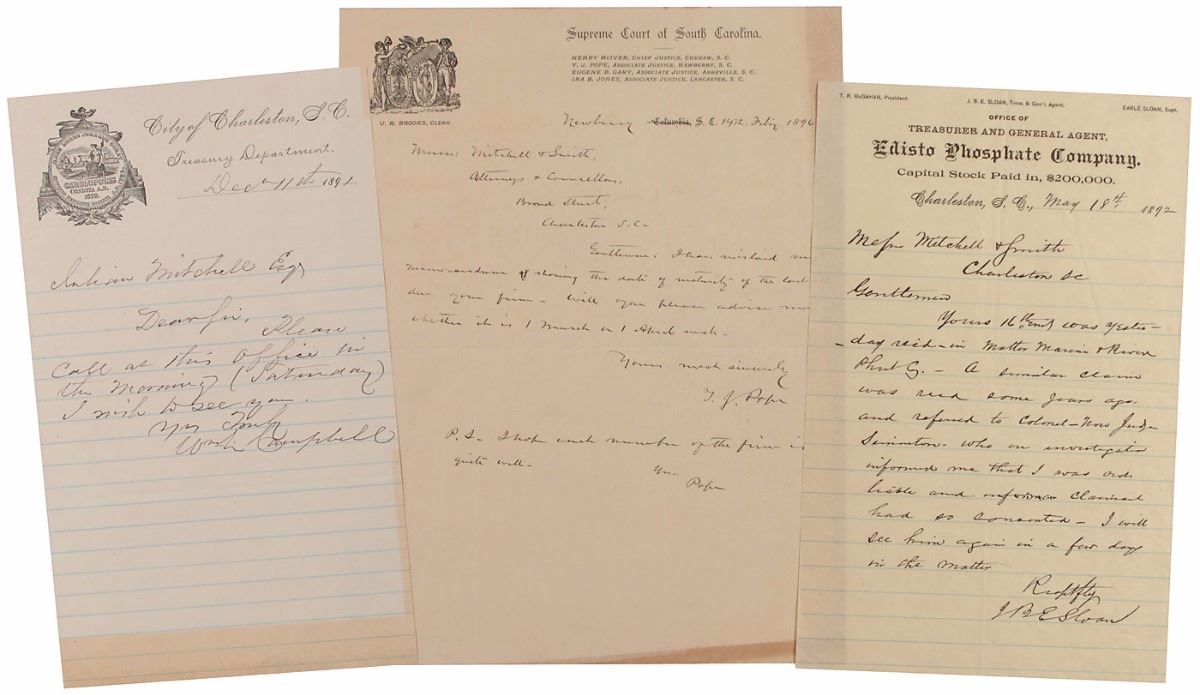 City of Charleston, S.C.
Treasury Department.
Dec 11th 1891
CAROLOPOLIS
CONDITA A.D.
1670
Julian Mitchell Esq
Dear Sir,
Please
call at this office in
the Morning (Saturday)
I wish to see you.
Yrs Truly
Campbell
Supreme Court of South Carolina.
HENRY McIVER, CHIEF JUSTICE, CHERAW, S. C.
Y. J. POPE, ASSOCIATE JUSTICE, NEWBERRY, S. C.
EUGENE B. GARY, ASSOCIATE JUSTICE, ABBEVILLE, S. C.
IRA B. JONES, ASSOCIATE JUSTICE, LANCASTER, S. C.
U. R. BROOKS, CLERK.
Newberry Columbia, S. C. 14th Feb'y 1896
Messrs Mitchell & Smith,
Attorneys & Counsellors,
Broad Street,
Charleston S.C.
Gentlemen: I have mislaid
memorandum showing the date of maturity of the
due your firm - Will you please advise me
whether it is 1 March or 1 April next.
Yours most sincerely
Y. J. Pope
P. S. I hope each member of the firm is
quite well.
Yrs.
Pope
T. R. McGAHAN, President.
J. B. E. SLOAN, Treas & Gen'l. Agent,
EARLE SLOAN, Supt.
OFFICE OF
TREASURER AND GENERAL AGENT,
Edisto Phosphate Company.
Capital Stock Paid in, $200,000.
Charleston, S. C., May 18th 1892
Messrs Mitchell & Smith
Charleston SC
Gentlemen
Yours 16th inst was yester-
-day recd - in Matter Marine & River
Phos Co. - A similar claim
was recd some years ago
and referred to Colonel - Now Judge
Simonton - who on investigation
informed me that I was not
liable and Claimant
had so consented - I will
see him again in a few days
in the matter
Respectfly
J B E Sloan